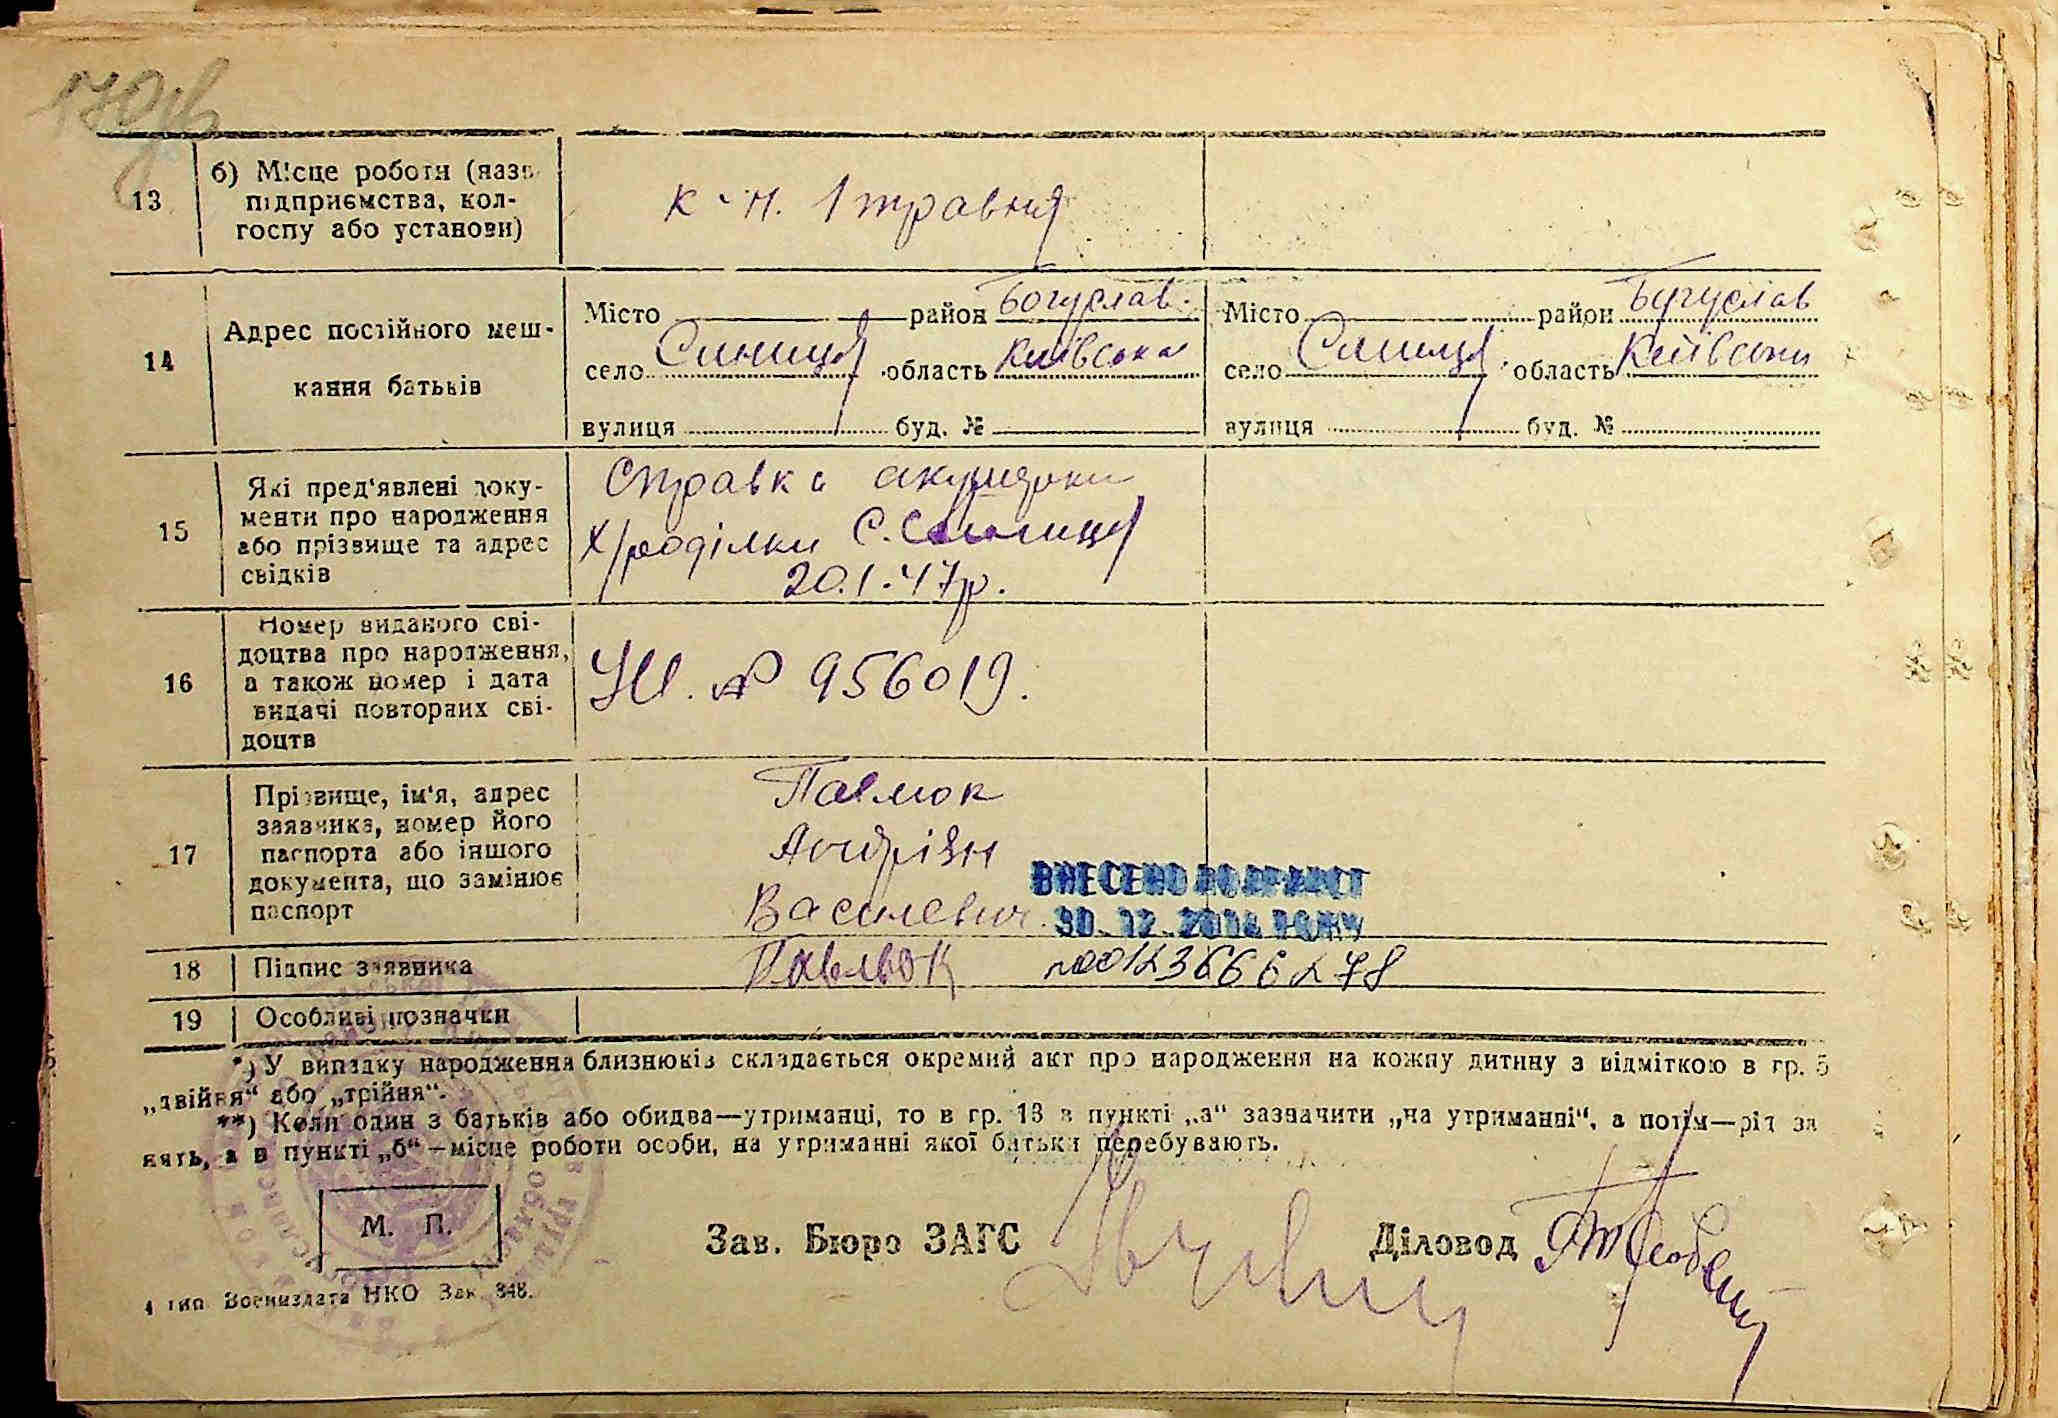 170зв
13
б) Місце роботи (назв
підприємства, кол-
госпу або установи)
к-п. 1 травня
14
Адрес постійного меш-
кання батьків
Місто район Богуслав.
село Синиця область Київська
вулиця буд. №
Місто район Богуслав
село Синиця область Київська
вулиця буд. №
15
Які пред'явлені доку-
менти про народження
або прізвище та адрес
свідків
Справка акушерки
х/роділки С. Синиця
20.1.47р.
16
Номер виданого сві-
доцтва про народження,
а також номер і дата
видачі повторних сві-
доцтв
№ 956019.
17
Прізвище, ім'я, адрес
заявника, номер його
паспорта або іншого
документа, що замінює
паспорт
Павлюк
Андріян
Василевич
ВНЕСЕНО ДО ДРАЦСГ
30.12.2014 РОКУ
18
Підпис заявника
Павлюк
00123666278
19
Особливі позначки
*) У випадку народження близнюків складається окремий акт про народження на кожну дитину з відміткою в гр. 5
„двійня" або „трійня".
**) Коли один з батьків або обидва—утриманці, то в гр. 13 в пункті „а" зазначити „на утриманні", а потім—рід за
нять, а в пункті „б"—місце роботи особи, на утриманні якої батьки перебувають.
М. П.
Зав. Бюро ЗАГС
Діловод
4 тип. Воениздата НКО Зак. 348.